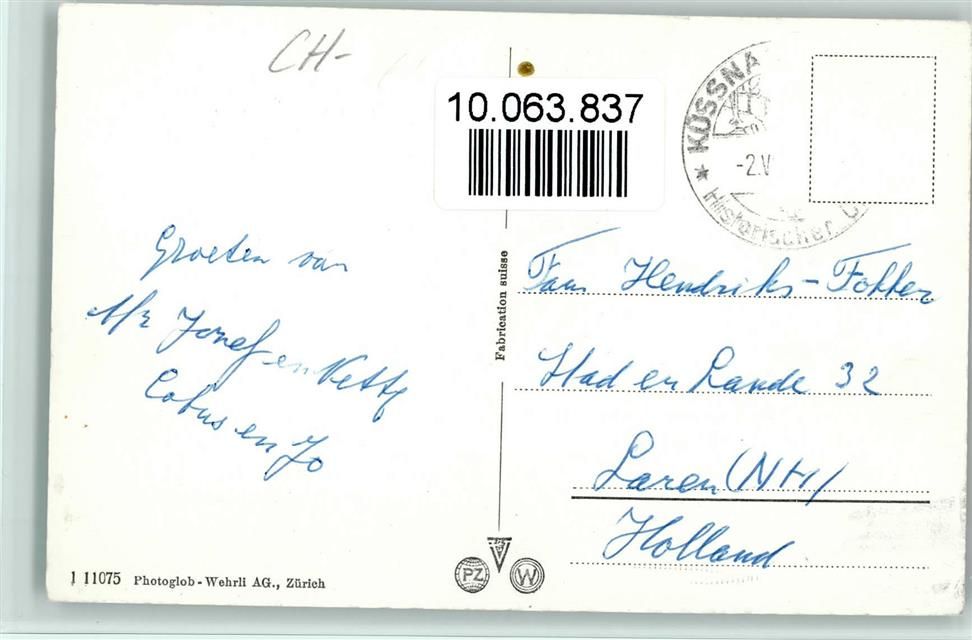 CH-
10.063.837
KÜSSNA
-2.V
★ Historischer
Groeten van
Josef en Netty
Cobus en Jo
Fabrication suisse
Fam Hendriks-Fokker
Stad en Lande 32
Laren (NH)
Holland
PZ
W
1 11075 Photoglob-Wehrli AG., Zürich